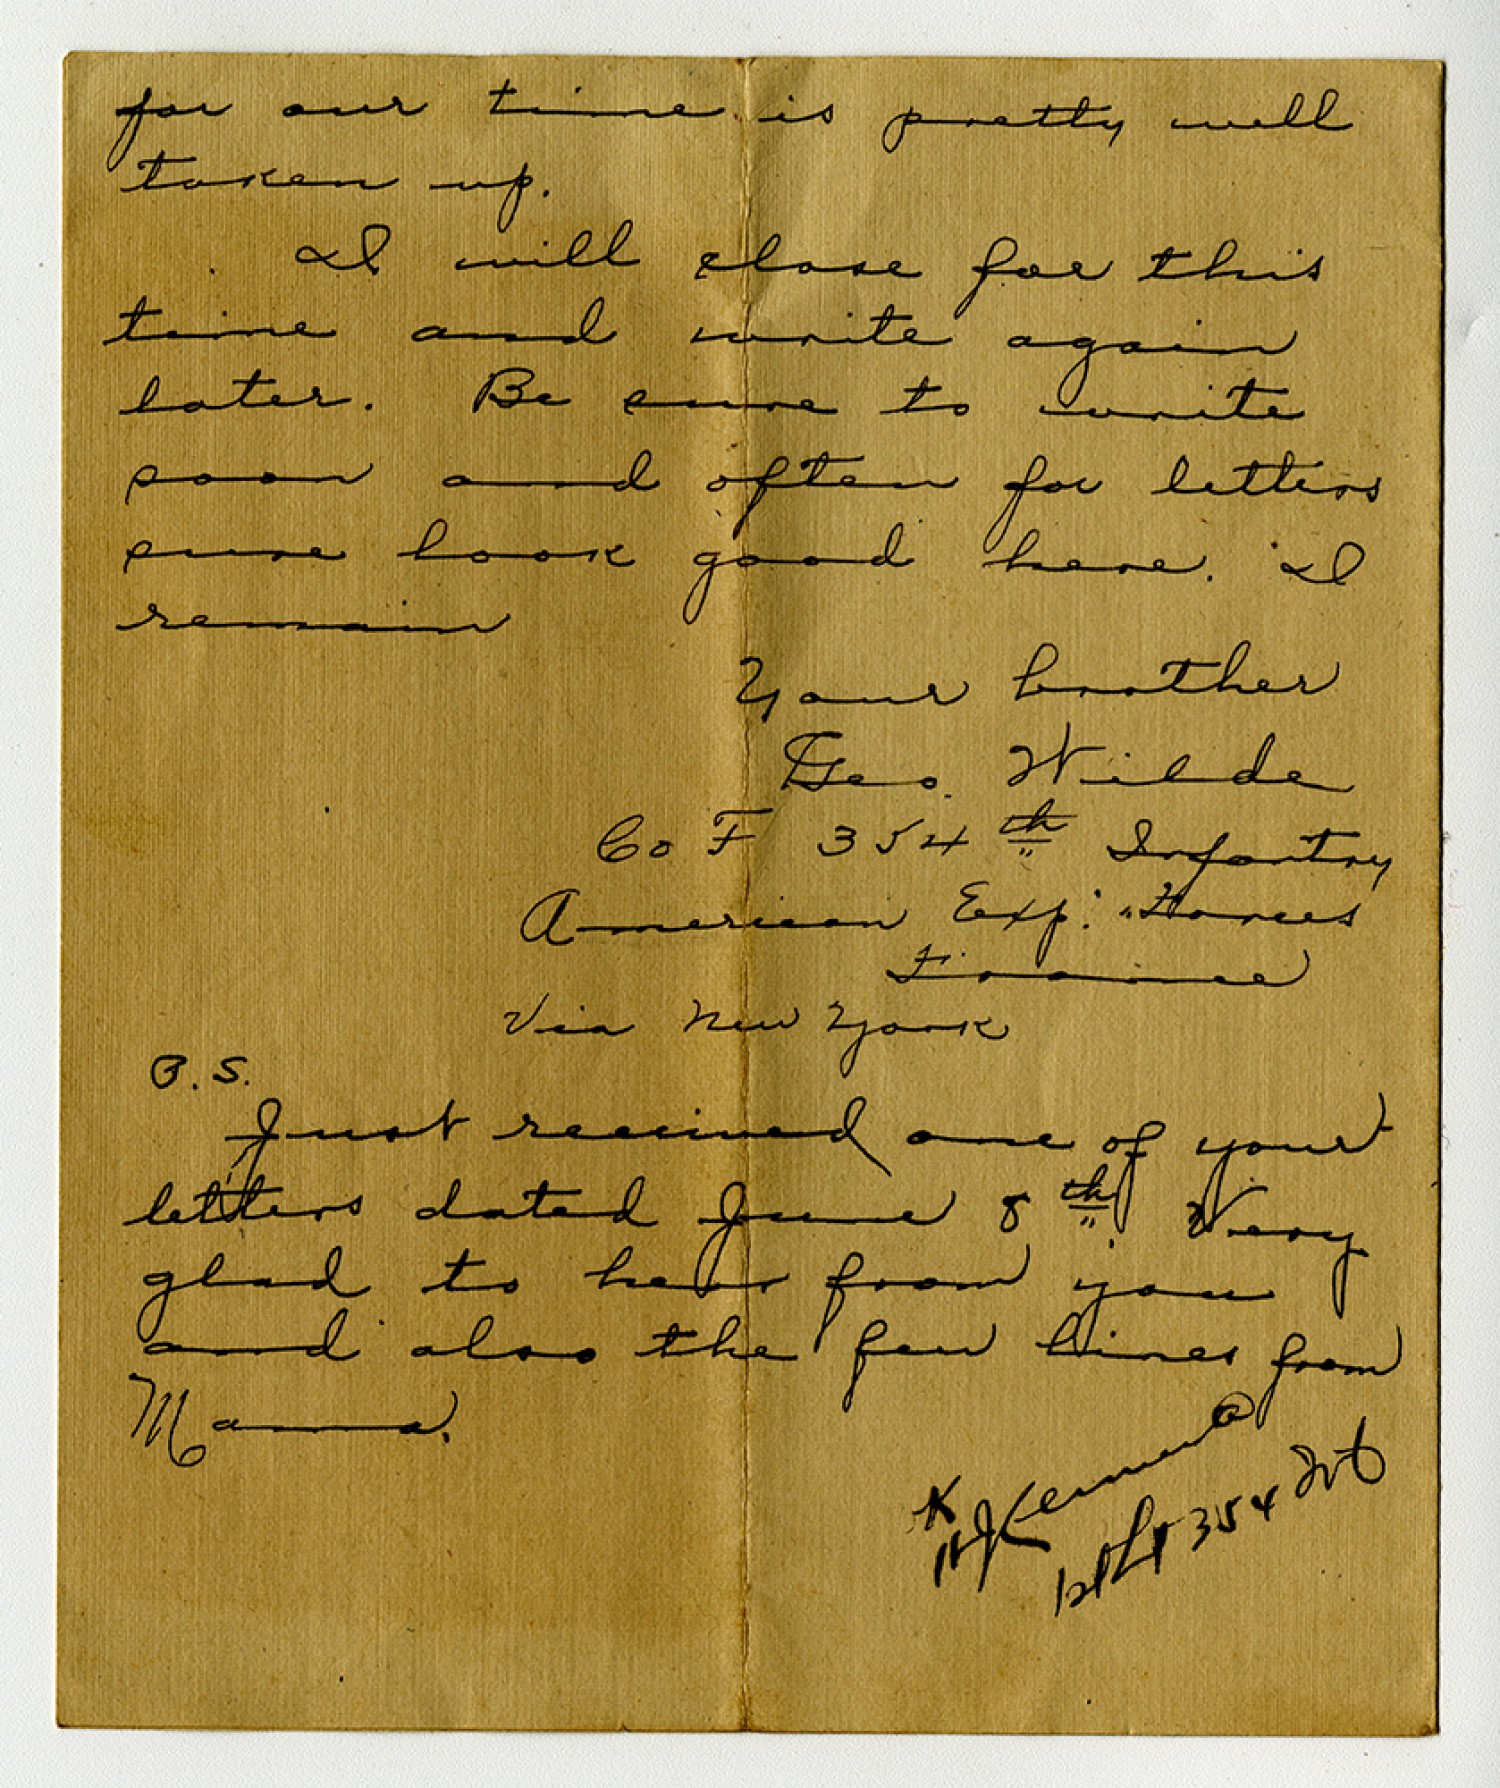 for our time is pretty well
taken up.
I will close for this
time and write again
later. Be sure to write
soon and often for letters
sure look good here. I
remain
Your brother
Geo. Wilde
Co F 354th Infantry
American Exp. Forces
France
Via New York
P.S.
Just received one of your
letters dated June 8th. Very
glad to hear from you
and also the few lines from
Mama.
354 Inf